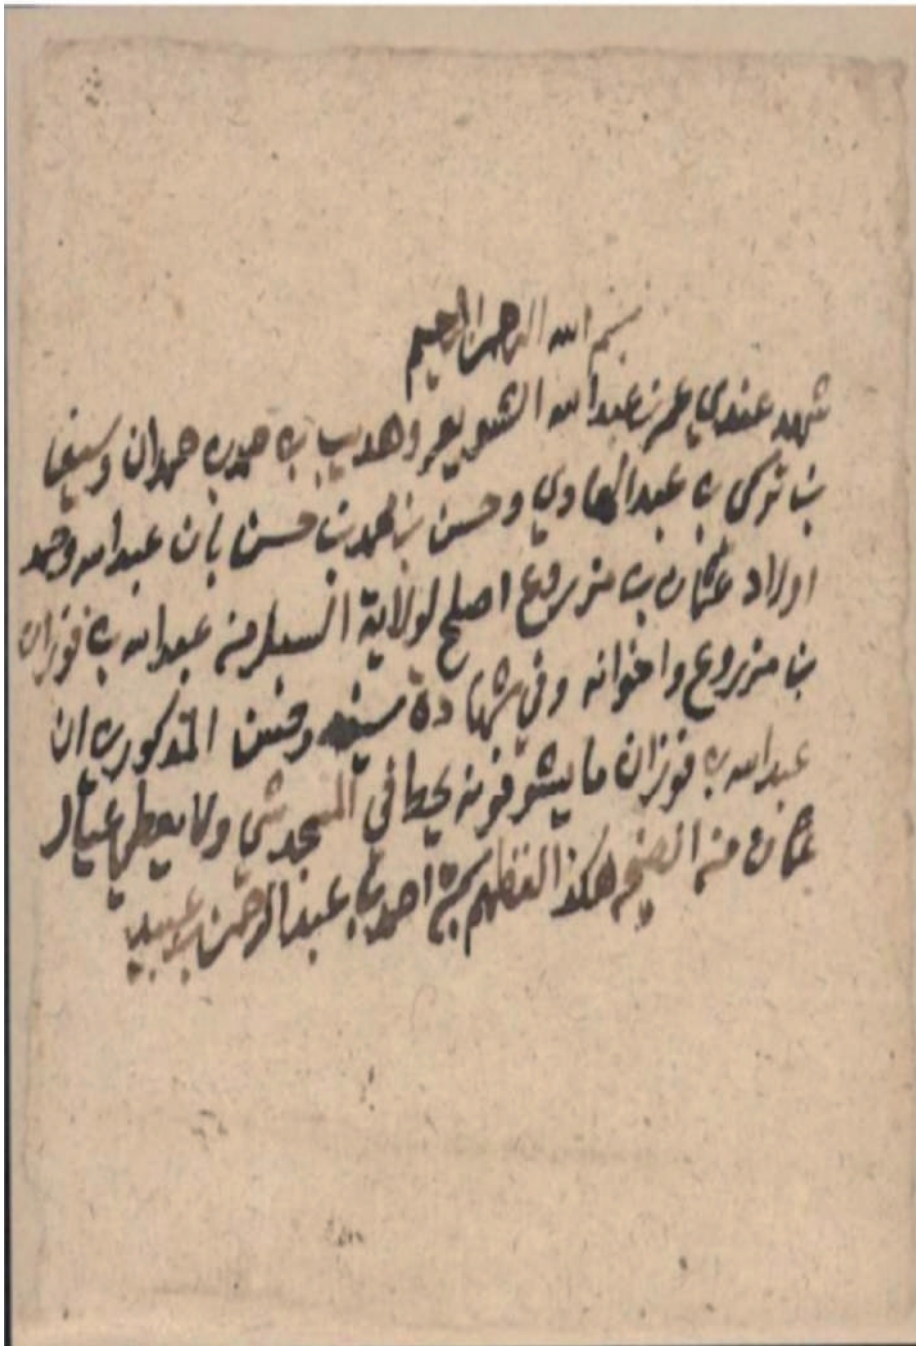 بسم الله الرحمن الرحيم
شهد عندي عمر بن عبدالله الشويعر وهديب بن حمد بن حمدان وسيف
بن تركي بن عبدالهادي وحسن بن محمد بن حسن بان عبدالله وحمد
اولاد عثمان بن مزروع اصلح لولاية السبل من عبدالله بن فوزان
بن مزروع واخوانه وفي شهادة سيف وحسن المذكورين ان
عبدالله بن فوزان ما يشوفونه يحط في المسجد شي ولا يعطي عيال
عثمان من هكذا لفظهم احمد بن عبدالرحمن بن عبيد